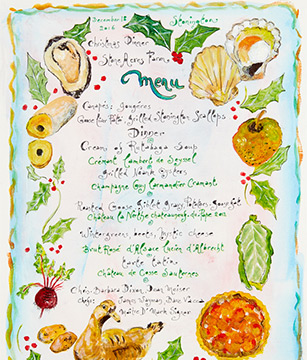 December 18 Stonington
2016
Christmas Dinner
Stone Acres Farm
Menu
Canapés: Gougères
Goose Liver Pate, Grilled Stonington Scallops
Dinner
Cream of Rutabaga Soup
Crémant Lambert de Seyssel
Grilled Noank Oysters
Champagne Guy Larmandier Cramant
Roasted Goose, Potatoes, Goose fat
Château La Nerthe Chateauneuf-du-Pape 2012
Wintergreens, beets, Mystic cheese
Brut Rosé d'Alsace Lucien Albrecht
tarte tatin
Château de Cosse Sauternes
Barbara Dixon, Dean Maiser
Chefs: James Wayman, Dana Vacca
Maître D' Mark Signor